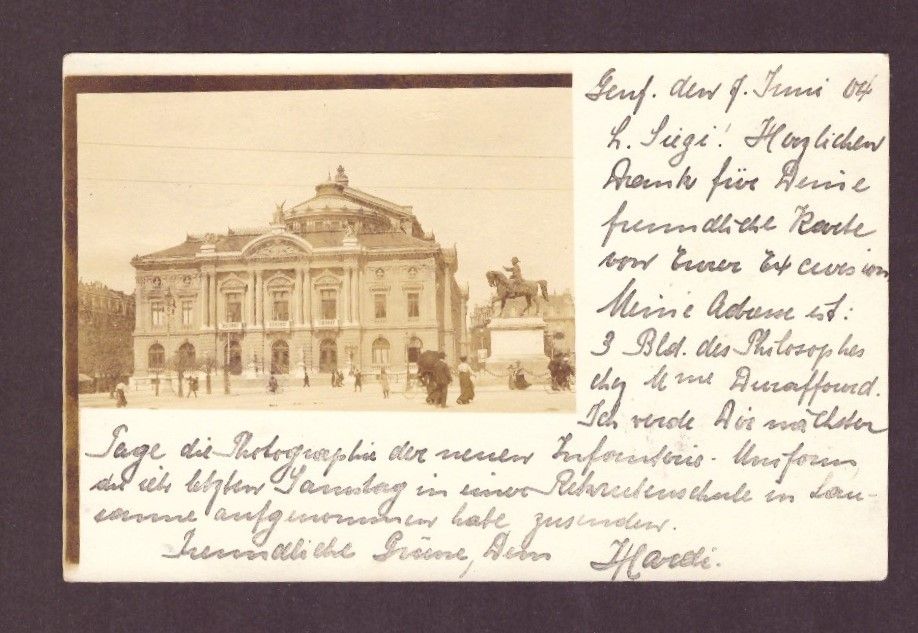 Genf. den 7. Juni 04
L. Siegi! Herzlichen
Dank für Deine
freundliche Karte
von Eurer Excursion
Meine Adresse ist:
3 Bld. des Philosophes
chez Mme Duraffourd.
Ich werde Dir nächster
Tage die Photographie der neuen Infanterie-Uniform,
die ich letzten Samstag in einer Rekrutenschule in Lau-
sanne aufgenommen habe zusenden.
Freundliche Grüsse, Dein